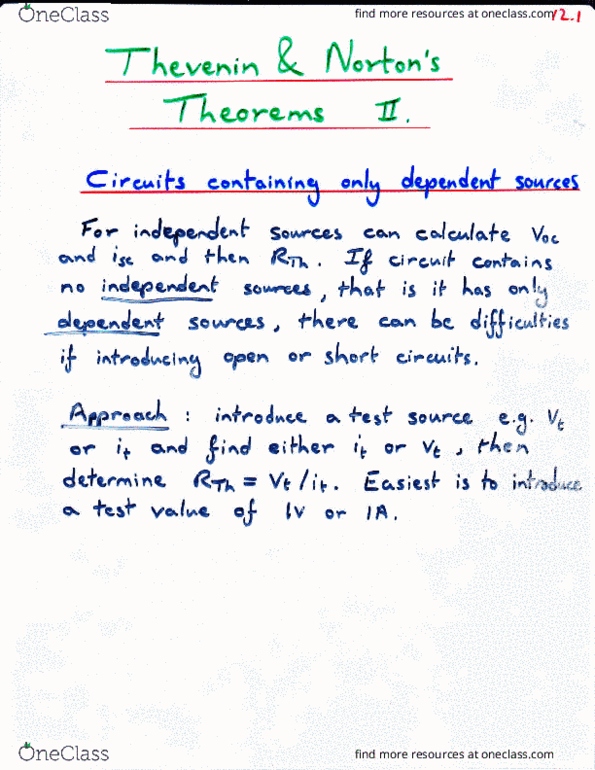 OneClass find more resources at oneclass.com
12.1
Thevenin & Norton's
Theorems II.
Circuits containing only dependent sources
For independent sources can calculate Voc
and isc and then RTh. If circuit contains
no independent sources, that is it has only
dependent sources, there can be difficulties
if introducing open or short circuits.
Approach : introduce a test source e.g. Vt
or it and find either it or Vt, then
determine RTh = Vt/it. Easiest is to introduce
a test value of 1V or 1A.
OneClass find more resources at oneclass.com